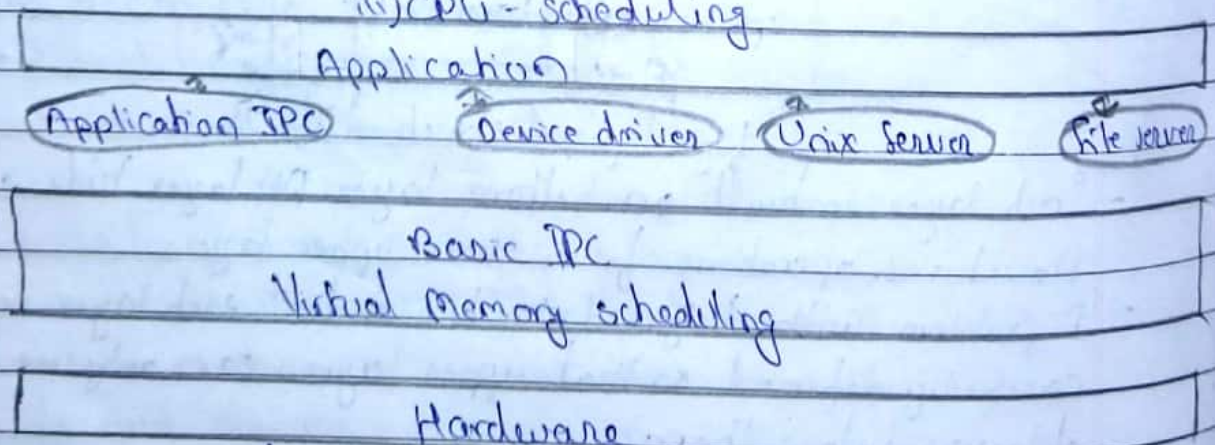 iii) CPU - scheduling
Application
Application IPC Device driver Unix Server File server
Basic IPC
Virtual memory scheduling
Hardware